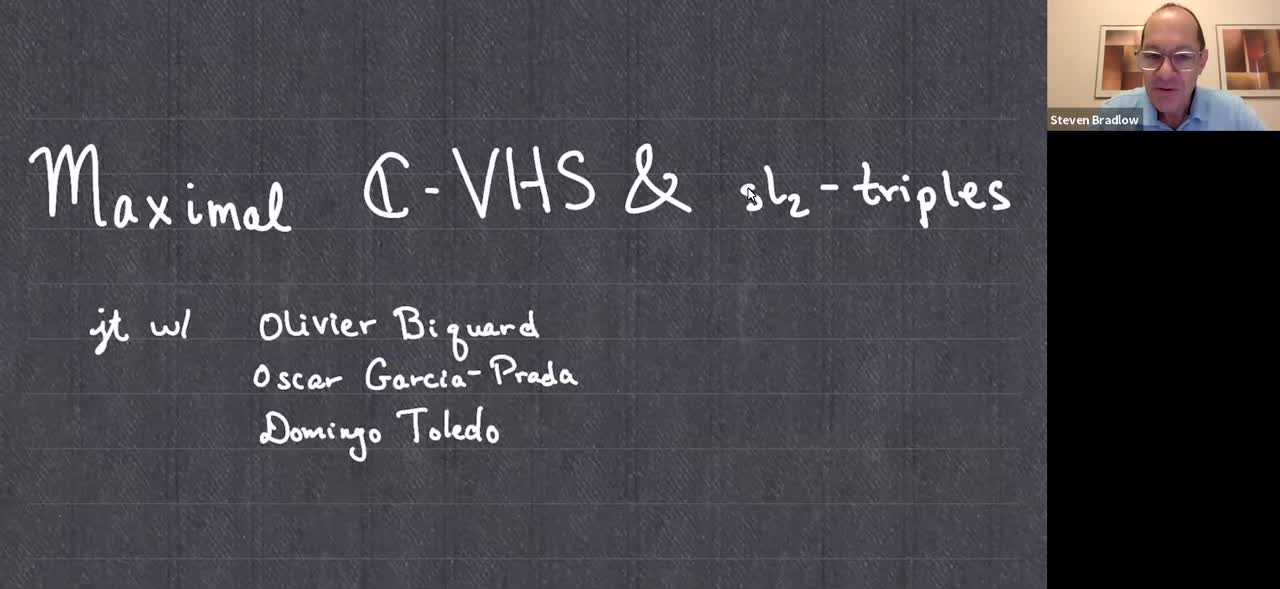 Maximal ℂ-VHS & sl₂-triples
jt w/ Olivier Biquard
Oscar Garcia-Prada
Domingo Toledo
Steven Bradlow